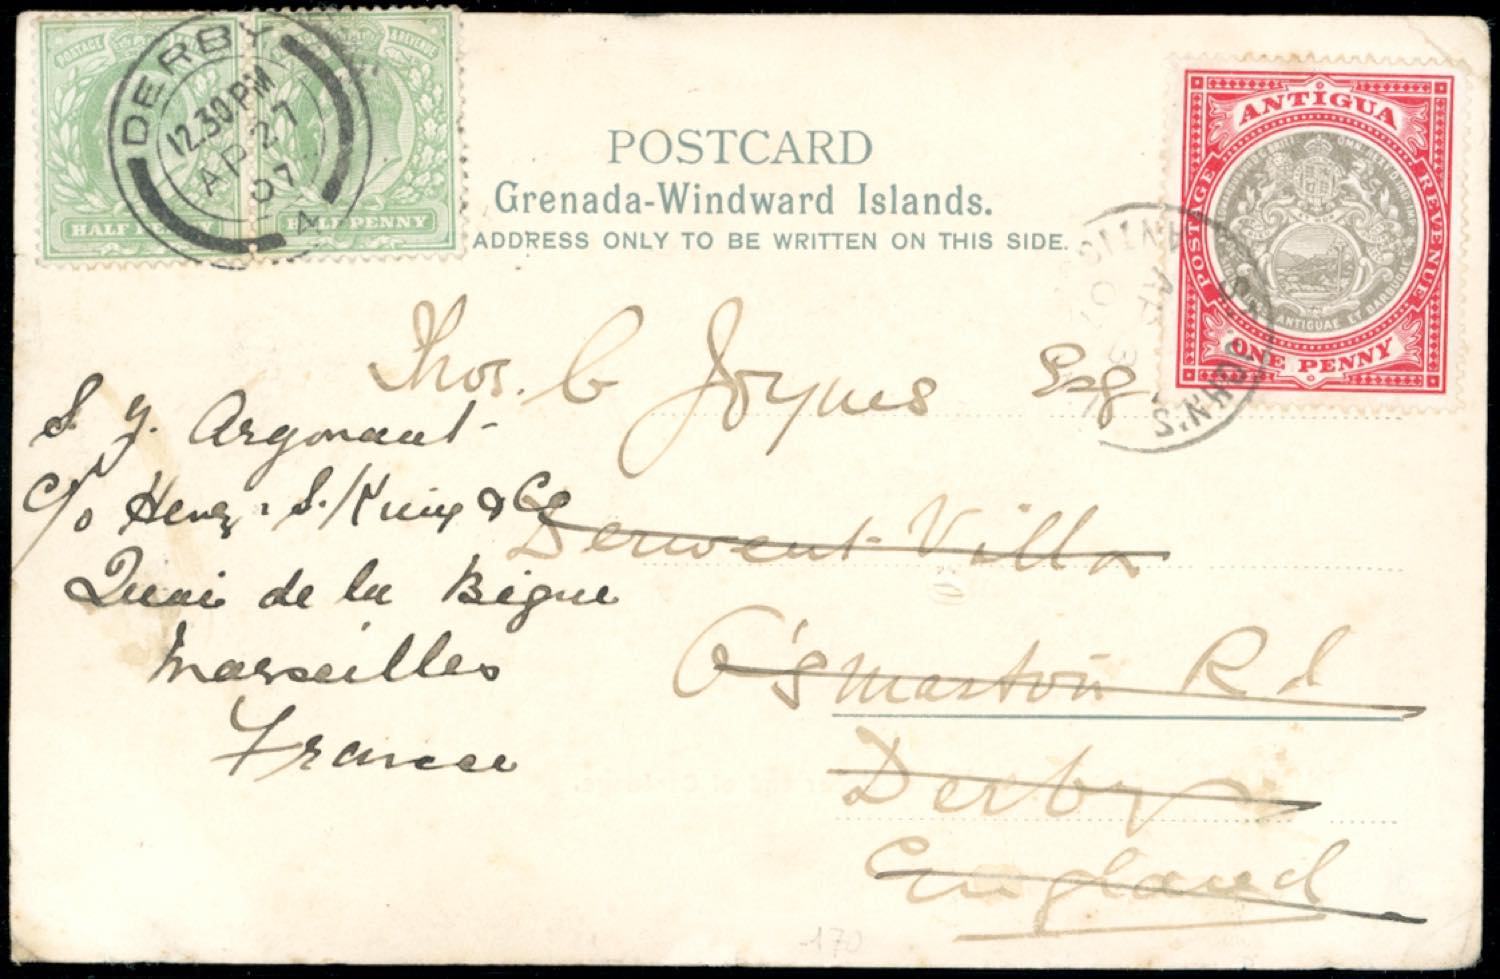 POSTAGE & REVENUE
HALF PENNY HALF PENNY
DERBY
12.30 PM
AP 27
07
POSTCARD
Grenada-Windward Islands.
ADDRESS ONLY TO BE WRITTEN ON THIS SIDE.
ANTIGUA
POSTAGE REVENUE
ONE PENNY
ST JOHN'S
ANTIGUA
AP 3
07
Thos. C Joynes Esq.
Derwent Villa
Osmaston Rd
Derby
England
S. Y. Argonaut
c/o Henry S. King & Co
Quai de la Bigue
Marseilles
France
170